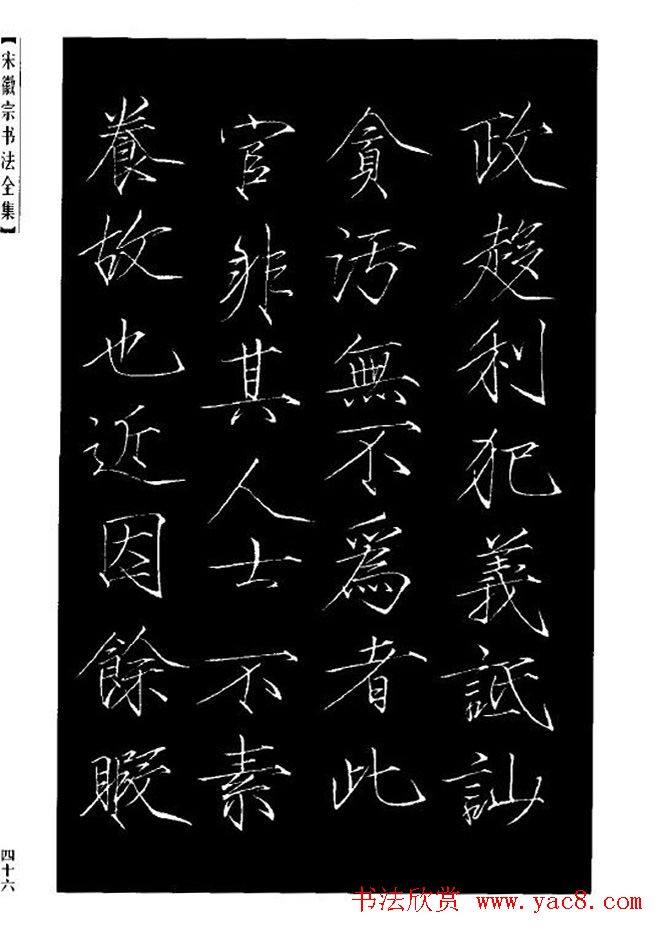 【宋徽宗书法全集】
政趍利犯義詆訕
貪污無不爲者此
官非其人士不素
養故也近因餘暇
四十六
书法欣赏 www.yac8.com